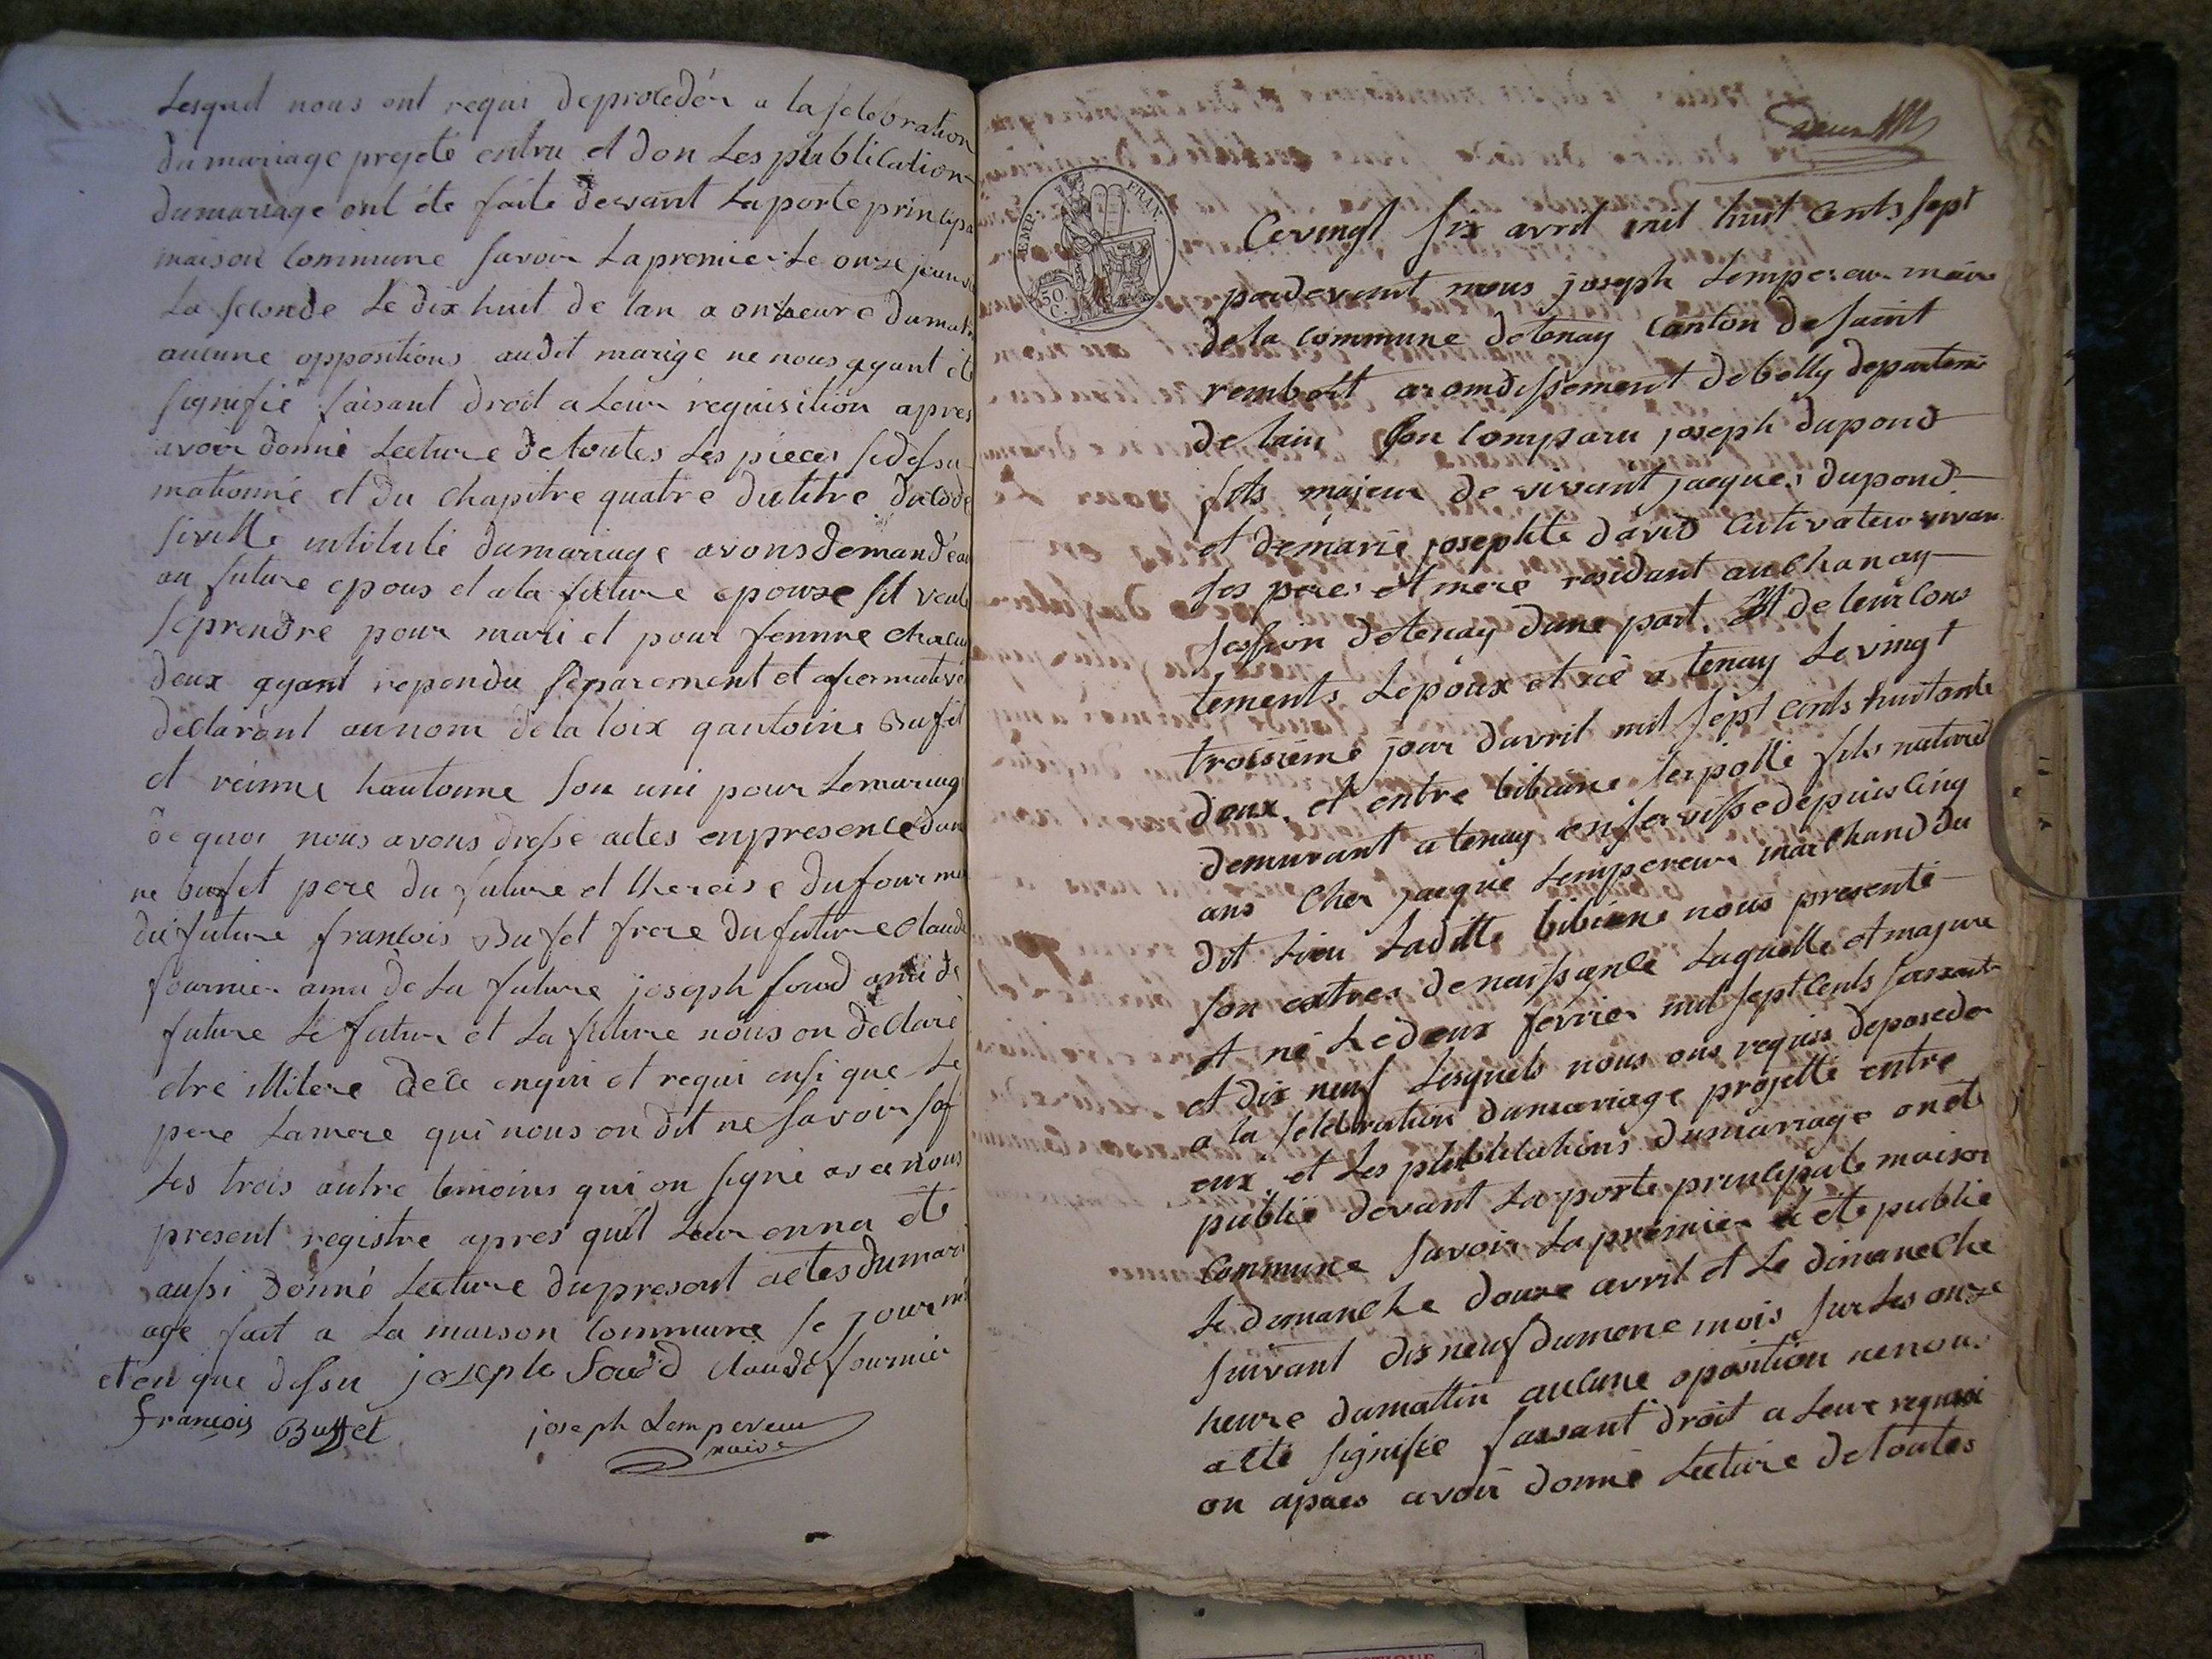 Lesquel nous ont requi deprosedér a la selebration
du mariage projeté entru et don Les publication
dumariage ont éte faite devant La porte principa
maison Commune savoir La premier Le onze janvi
La seconde Le dix huit de lan a onz heure dumat
aucune oppositions audit marige ne nous ayant été
signifié faisant droit a Leur requisition apres
avoir donné Lecture de toutes Les pieces sidesu
mationné et du Chapitre quatre dutitre ducode
siville intitulé dumariage avons demandé au
au future epous et a la future epouze sil veule
seprendre pour mari et pour femme chacun
deux ayant repondu séparement et afermative
declaront aunom de la loix qantoine Bufet
et reinne hautonne son uni pour Lemariag
de quoi nous avons dressé actes enpresence dan
ne bufet pere du future et thereise dufour me
du future francois Bufet frere dufuture Claude
fournier ami de La future joseph foud ami de
future Le futur et La future nous on déclaré
etre illitere dece enqui et requi ensi que Le
pere Lamere qui nous on dit ne savoir sig
Les trois autre temoins qui on signé avecnous
present registre apres quil Leur enna ete
aussi donné Lecture dupresent actes dumari
age fait a La maison Commune Le jour moi
et en que desu joseph Foud Claude fournier
francois Buffet joseph Lempereur
maire
deux
EMP. FRAN.
50 C.
Cevingt six avril mil huit Cents sept
pardevant nous joseph Lempereur maire
de la Commune detenay Canton de saint
rembert arondissement debelly departem
de lain Son Comparu joseph dupond
fils majeur de vivant jacques dupond
et demarie josephte david Cultivateur vivan
ses peres et mere residant auChanay
section detenay dune part. Et de leur Cons
tements Lepoux et né a tenay Le vingt
troisieme jour davril mil sept cents huitante
deux. et entre bibiane serpolle fils naturel
demurant a tenay enservisse depuis Cinq
ans Cher jacque Lempereur marChand du
dit Lieu Laditte bibiane nous presenté
son extres denaissance Laquelle et majure
et né Le deux fevrier mil sept Cents soixante
et dix neuf Lesquels nous ons requis deposeder
a la selebration dumariage projetté entre
eux et Les publications dumariage on ete
publié devant La porte principale maison
Commune savoir La premier a ete publié
Le demanche douze avril et Le dimaneche
suivant dis neuf dumeme mois sur Les onze
heure dumattin aucune oposition nenous
a eté signifié faisant droit a Leur requisi
on apres avoir donné Lecture de toutes